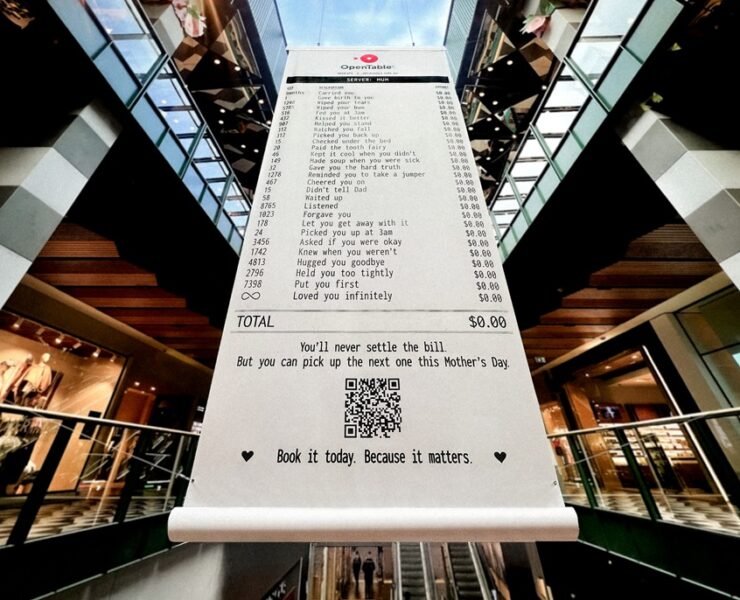 OpenTable
SERVER: MUM
Carried you $0.00
Gave birth to you $0.00
Wiped your tears $0.00
Wiped your bum $0.00
Fed you at 3am $0.00
Kissed it better $0.00
Helped you stand $0.00
Watched you fall $0.00
Picked you back up $0.00
15 Checked under the bed $0.00
20 Paid the tooth fairy $0.00
46 Kept it cool when you didn't $0.00
149 Made soup when you were sick $0.00
32 Gave you the hard truth $0.00
1278 Reminded you to take a jumper $0.00
467 Cheered you on $0.00
15 Didn't tell Dad $0.00
58 Waited up $0.00
8765 Listened $0.00
1023 Forgave you $0.00
178 Let you get away with it $0.00
24 Picked you up at 3am $0.00
3456 Asked if you were okay $0.00
1742 Knew when you weren't $0.00
4813 Hugged you goodbye $0.00
2796 Held you too tightly $0.00
7398 Put you first $0.00
∞ Loved you infinitely $0.00
TOTAL $0.00
You'll never settle the bill.
But you can pick up the next one this Mother's Day.
♥ Book it today. Because it matters. ♥